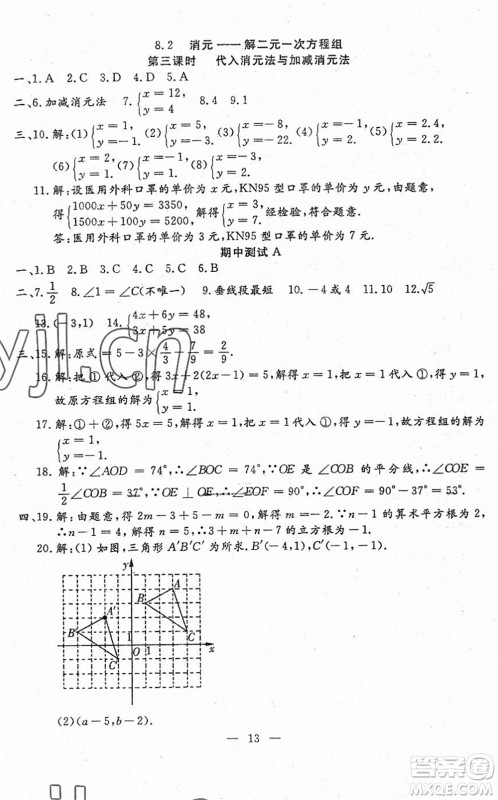 8.2 消元——解二元一次方程组
第三课时 代入消元法与加减消元法
一、1.A 2.D 3.D 4.D 5.A
二、6.加减消元法 7.{x=12, y=4 8.{x=2, y=1 9.1
三、10.解:(1){x=1, y=-1. (2){x=1, y=-1. (3){x=2, y=1.
(6){x=2, y=1. (7){x=3, y=1.
11.解:设医用外科口罩的单价为x元,KN95型口罩的单价为y元,由题意,
得{1000x+50y=3350, 1500x+100y=5200,解得 经检验,符合题意.
答:医用外科口罩的单价为 元,KN95型口罩的单价为7元.
期中测试A
一、1.B 2.B 3.A 4.C 5.C 6.B
二、7.1/2 8.∠1=∠C(不唯一) 9.垂线段最短 10.-4或4 11.10 12.√5
13.(-3,1) 14.{4x+6y=48, 3x+5y=38
三、15.解:原式=5-3×4/3-7/9=2/9.
16.解:把①代入②,得3x+2(2x-1)=5,解得x=1,把x=1代入①,得y=1,
故原方程组的解为{x=1, y=1.
17.解:①+②,得5x=5,解得x=1,把x=1代入①,得y=-1,故方程组的解为
{x=1, y=-1.
18.解:∵∠AOD=74°,∴∠BOC=74°.∵OE是∠COB的平分线,∴∠COE=
1/2∠COB=37°.∵OE⊥OF,∴∠EOF=90°,∴∠COF=90°-37°=53°.
四、19.解:由题意,得2m-3+5-m=0,解得m=-2.∵n-1的算术平方根为2,
∴n-1=4,∴n=5.
20.解:(1)如图,三角形A'B'C'为所求.B'(-4,1),C'(-1,-1).
y
A' A
B' B
1
C
O 1 x
C'
(2)(a-5,b-2).
— 13 —
yj1.cn